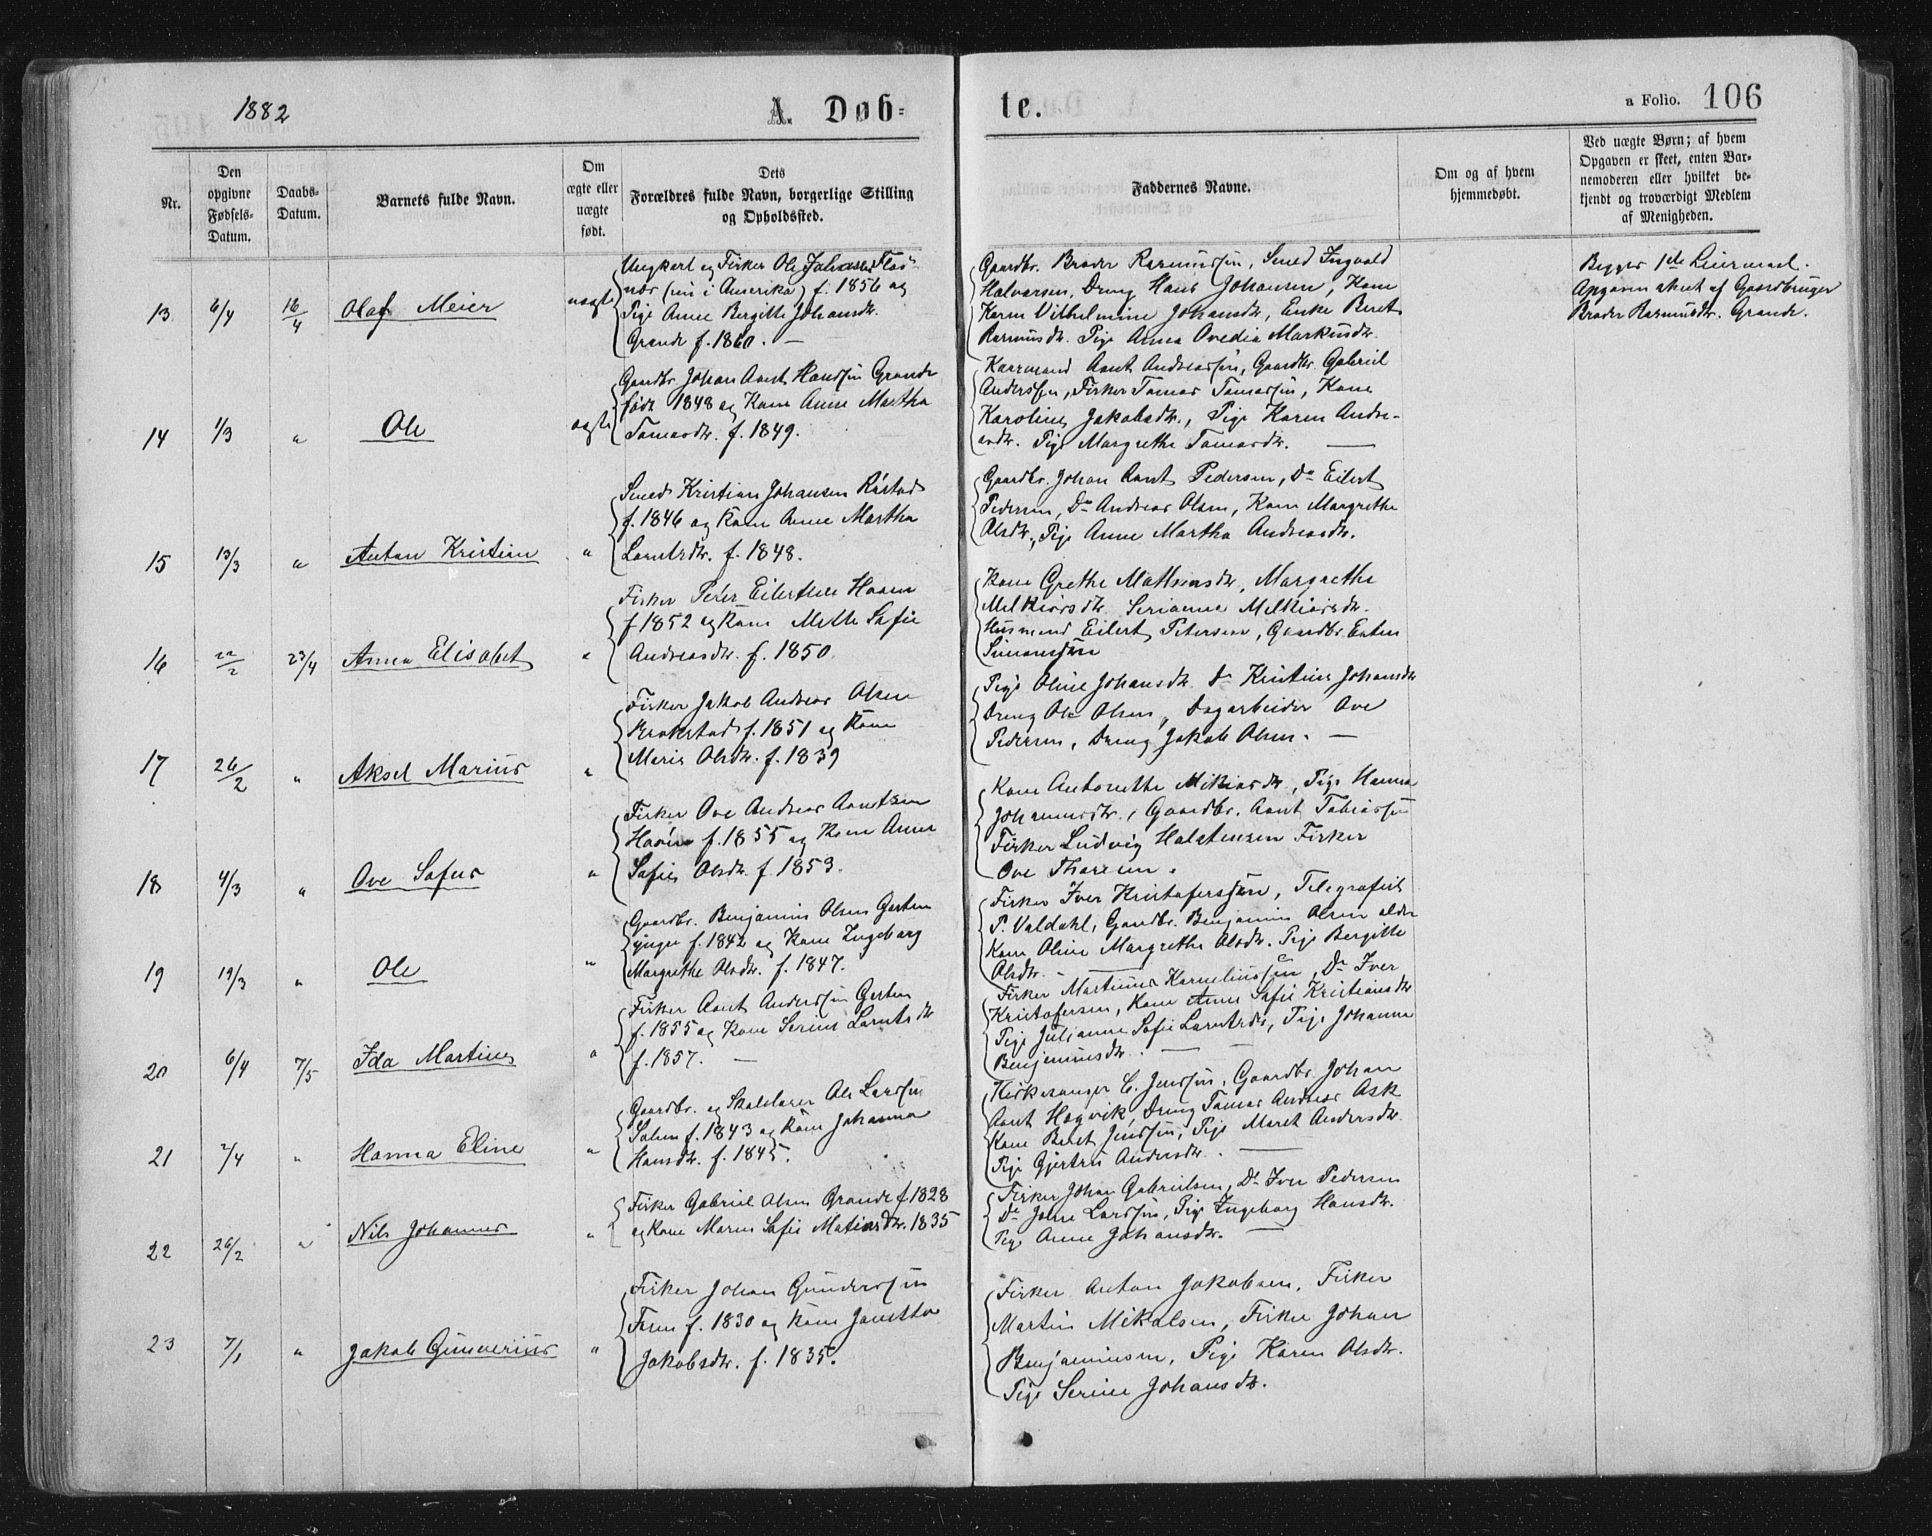 1882
A. Døb-
te.
a Folio. 106
Nr.
Den
opgivne
Fødsels-
Datum.
Daabs-
Datum.
Barnets fulde Navn.
Om
ægte eller
uægte
født.
Dets
Forældres fulde Navn, borgerlige Stilling
og Opholdssted.
Faddernes Navne.
Om og af hvem
hjemmedøbt.
Ved uægte Børn; af hvem
Opgaven er skeet, enten Bar-
nemoderen eller hvilket be-
kjendt og troværdigt Medlem
af Menigheden.
13 6/4 16/4 Olaf Meier uægte
Ungkarl og Fisker Ole Johansen
(nu i Amerika) f. 1856 og
Pige Anne Bergitte Johansdtr.
Grande f. 1860. —
Gaardbr. Broder Rasmussen, Smed Ingvald
Halvorsen, Dreng Hans Johansen, Kone
Karen Vilhelmine Johansdtr, Enke Beret
Rasmusdtr. Pige Anna Ovedia Markusdtr.
Begges 1ste Leiermaal.
Opgaven skeet af Gaardbruger
Broder Rasmusdtr. Grande.
14 1/3 " Ole ægte
Gaardbr. Johan Arnt Hansen Grande
født 1848 og Kone Anne Martha
Tomasdtr. f. 1849.
Kaarmand Arnt Andreassen, Gaardbr. Gabriel
Anderssen, Fisker Tomas Tomassen, Kone
Karoline Jakobsdtr., Pige Karen Andre-
asdtr. Pige Margrethe Tomasdtr. —
15 13/3 " Anton Kristian "
Smed Kristian Johansen Røstad
f. 1846 og Kone Anne Martha
Larntsdtr. f. 1848.
Gaardbr. Johan Arnt Pedersen, Do Eilert
Pedersen, Do Andreas Olsen, Kone Margrethe
Olsdtr., Pige Anne Martha Andreasdtr.
16 22/2 23/4 Anna Elisabet "
Fisker Peter Eilertsen
f 1852 og Kone Mette Sofie
Andreasdtr. f. 1850.
Kone Grethe Mathiasdtr, Margrethe
Melkiorsdtr. Serianna Melkiorsdtr.
Husmand Eilert Petersen, Gaardbr. Enten
Simonssen
17 26/2 " Aksel Marius "
Fisker Jakob Andreas Olsen
f. 1851 og Kone
Marie Olsdtr. f. 1839
Pige Oline Johansdtr. Do Kristine Johansdtr
Dreng Ole Olsen, Dagarbeider Ove
Pedersen, Dreng Jakob Olsen. —
18 4/3 " Ove Sofus "
Fisker Ove Andreas Arntsen
f. 1855 og Kone Anne
Sofie Olsdtr. f. 1853.
Kone Antonette Mikiasdtr, Pige Hanna
Johannesdtr., Gaardbr. Arnt Tobiassen
Fisker Ludvig Halstensen Fisker
Ove
19 19/3 " Ole "
Gaardbr. Benjamin Olsen Garten
yngre f. 1842 og Kone Ingeborg
Margrethe Olsdtr. f. 1847.
Fisker Iver Kristoferssen, Telegrafist
P. Valdahl, Gaardbr. Benjamin Olsen ældre
Kone Oline Margrethe Olsdtr. Pige Bergitte
Olsdtr.
20 6/4 7/5 Ida Martine "
Fisker Arnt Anderssen Garten
f. 1855 og Kone Serine Larntsdtr
f. 1857. —
Fisker Martinus Korneliussen, Do Iver
Kristofersen, Kone Anne Sofie Kristiansdtr
Pige Julianne Sofie Larntsdtr, Pige Johanna
Benjaminsdtr. —
21 2/4 " Hanna Eline "
Gaardbr. og Skolelærer Ole Larssen
f. 1843 og Kone Johanna
Hansdtr. f. 1845.
Kirkesanger C. Jenssen, Gaardbr. Johan
Arnt Høgvik, Dreng Tomas Andreas Ask
Kone Beret Jenssen, Pige Maret Andersdtr.
Pige Gjertru Andersdtr. —
22 26/2 " Nils Johannes "
Fisker Gabriel Olsen Grande f. 1828
og Kone Maren Sofie Matiasdtr. 1835
Fisker Johan Gabrielsen, Do Iver Pedersen
Do Johan Larssen, Pige Ingeborg Hansdtr.
Pige Anne Johansdtr. —
23 7/1 " Jakob Gunnerius "
Fisker Johan Gunderssen
f. 1830 og Kone Jonetta
Jakobsdtr. f. 1835.
Fisker Anton Jakobsen, Fisker
Martin Mikalsen, Fisker Johan
Benjaminsen, Pige Karen Olsdtr.
Pige Serine Johansdtr.